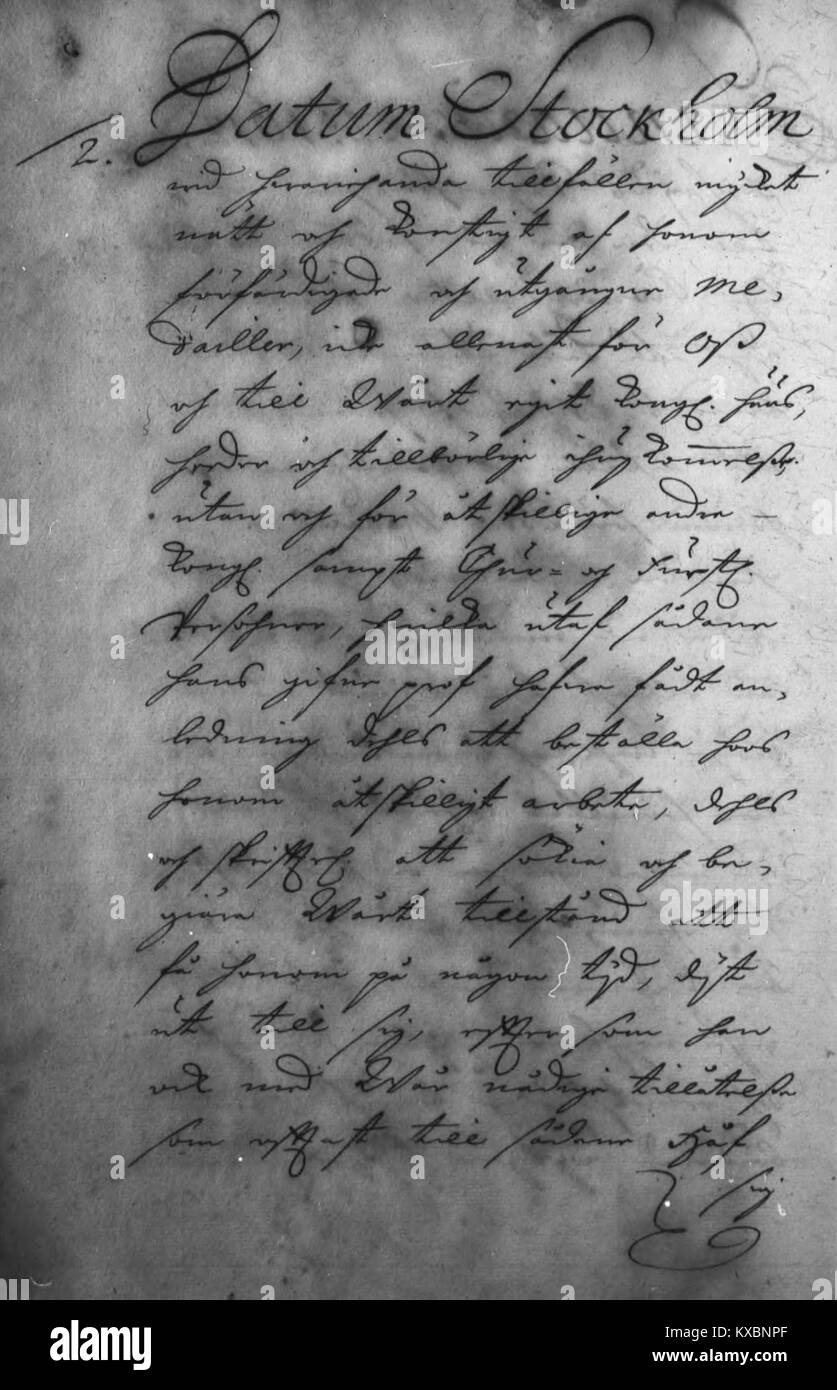 Datum Stockholm
2.
vid hvarjehanda tillfällen mycket
nätt och konstigt af honom
förfärdigade och utgångne Me-
dailler, icke allenast för Oss
och till Wårt egit Kongl. huus,
heder och tillbörlige ihugkommelse,
utan och för åtskillige andre
Kongl. sampt Chur- och Fürstl.
Persohner, hvilka utaf sådane
hans gifne prof hafva fådt an-
ledning dehls att beställa hoos
honom åtskilligt arbete, dehls
och skrifftel. att sökia och be-
giära Wårt tillstånd att
få honom på någon tijd, dijt
ut till sig, effter som han
ock med Wår nådige tillåtelse
som offtast till sådane Hof
sig
a
alamy
Image ID: KXBNPF
www.alamy.com